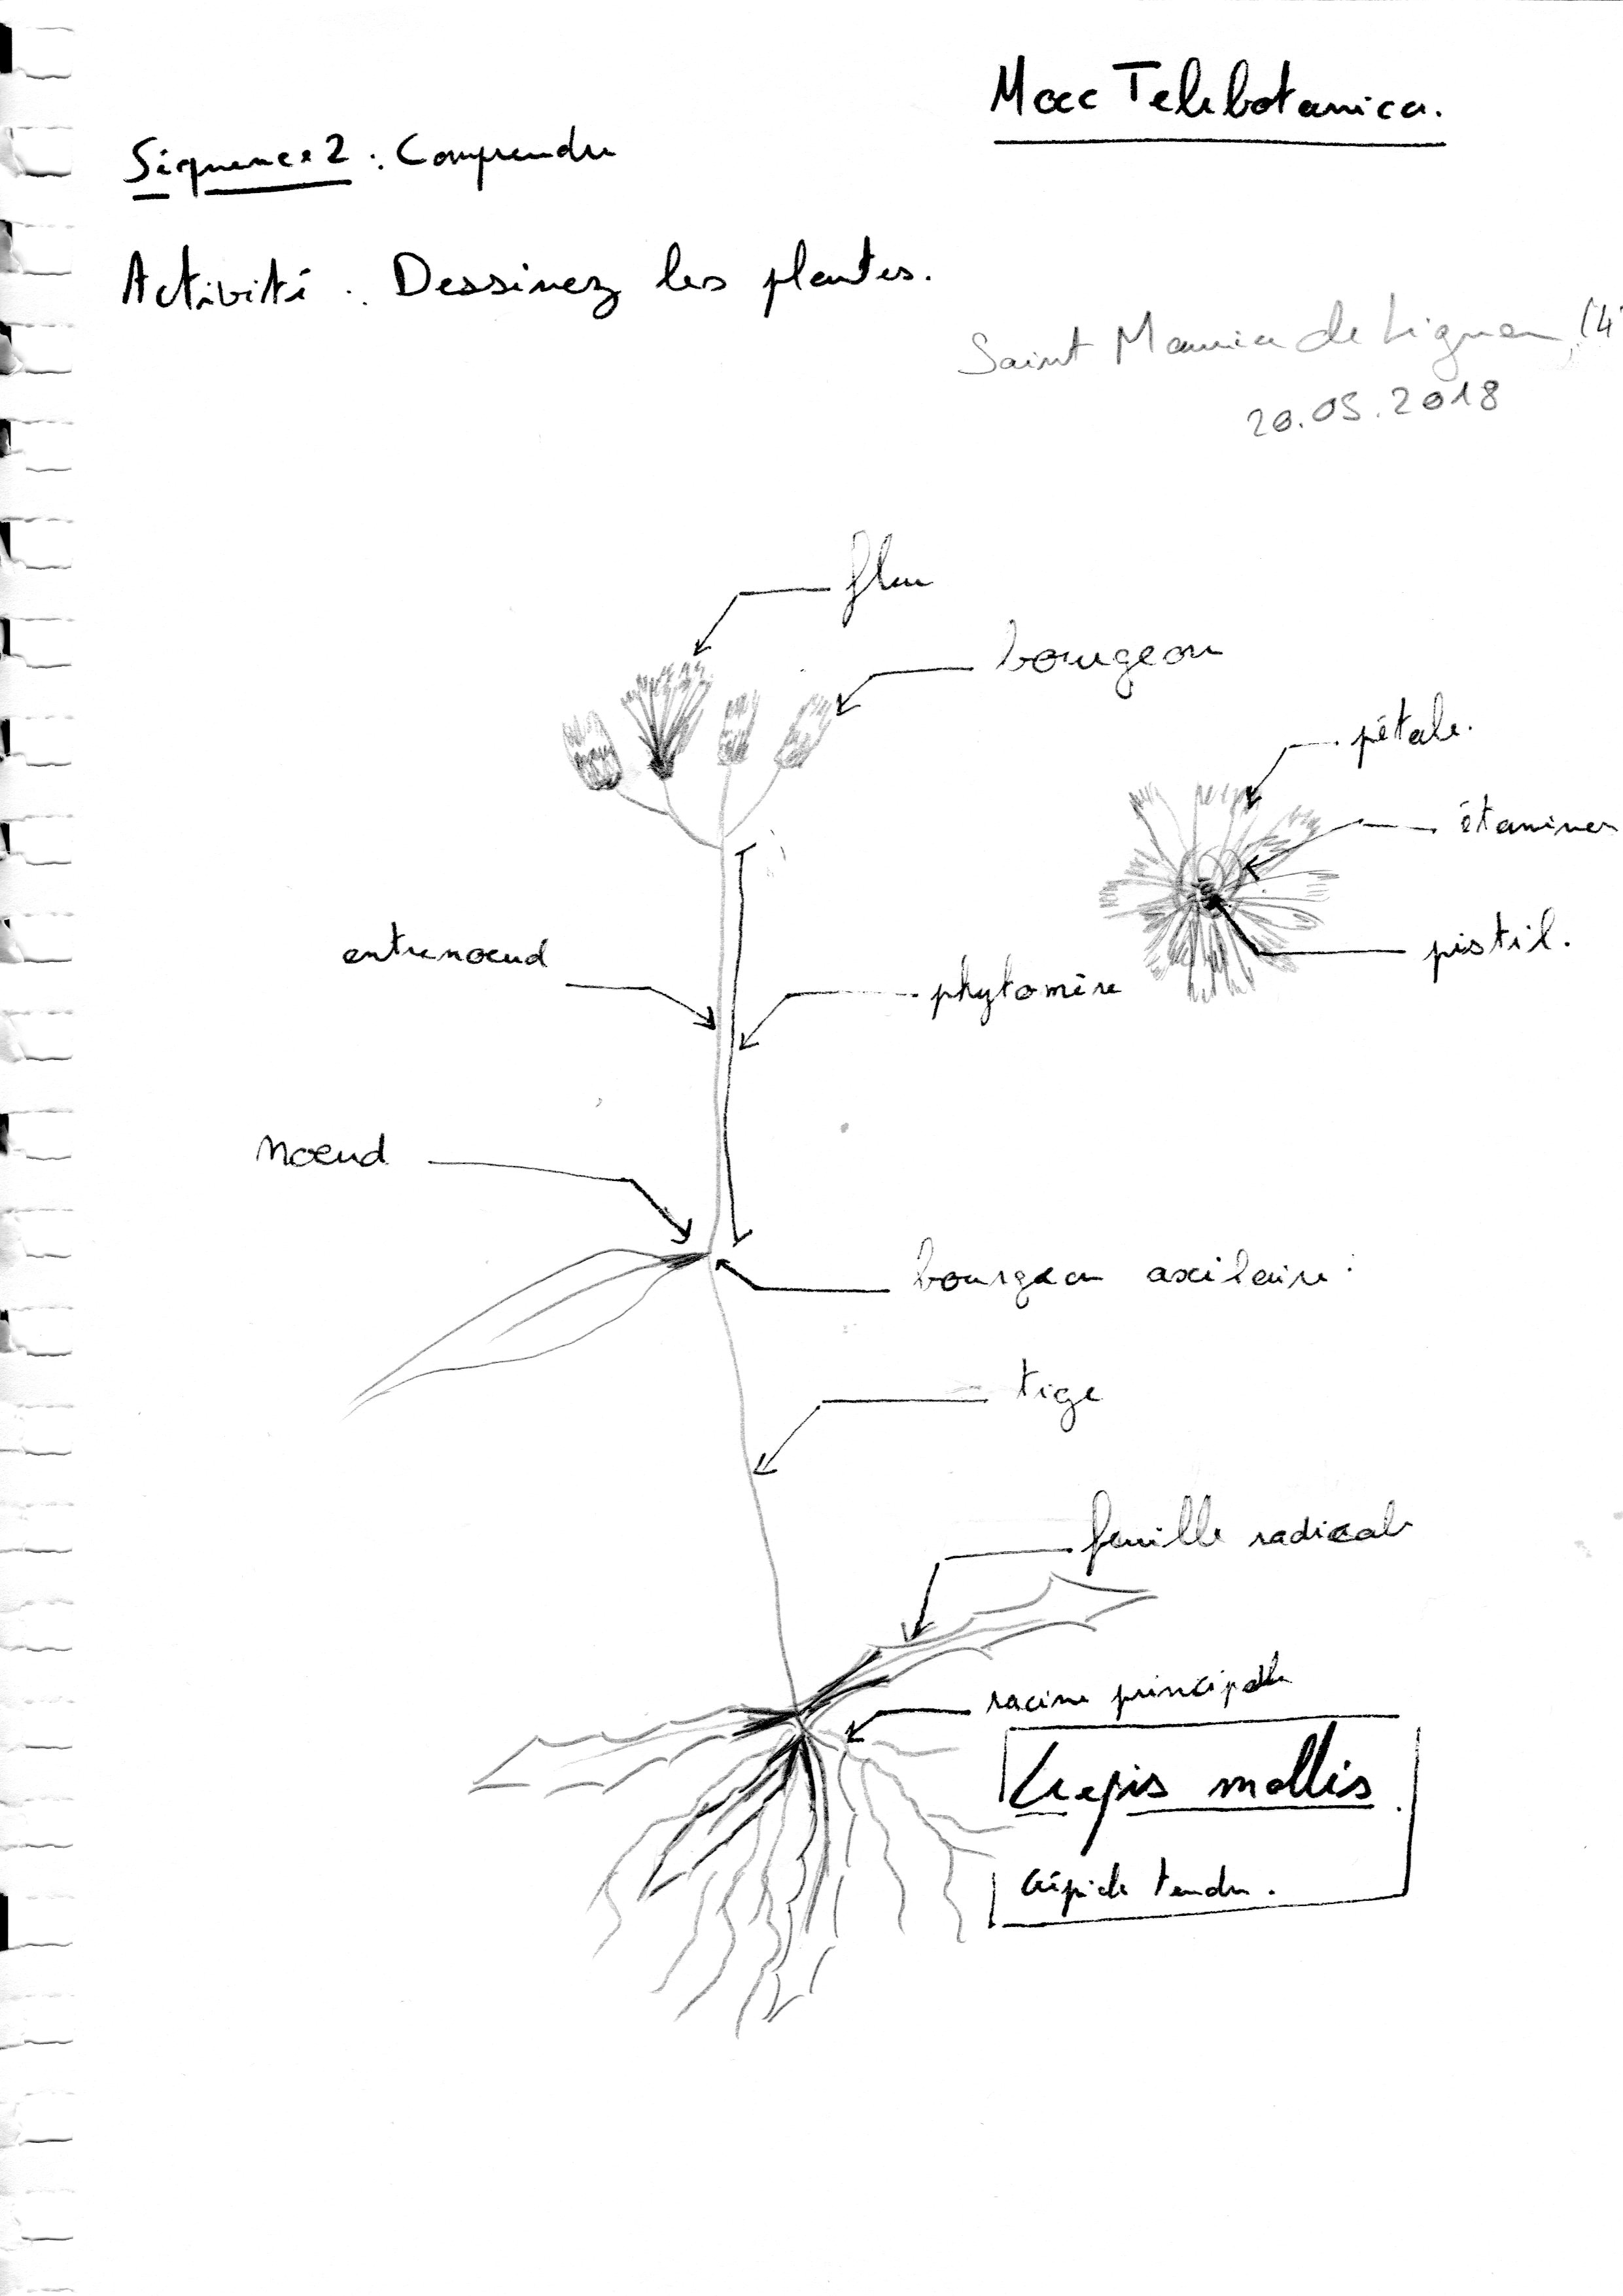 Mooc Telebotanica.
Séquence 2 : Comprendre
Activité : Dessinez les plantes.
Saint Maurice de Lignon, (4
20.05.2018
fleur
bourgeon
pétale.
étamines
pistil.
entrenoeud
phytomère
noeud
bourgeon axilaire
tige
feuille radicale
racine principale
Crepis mollis
Crépide tendre.